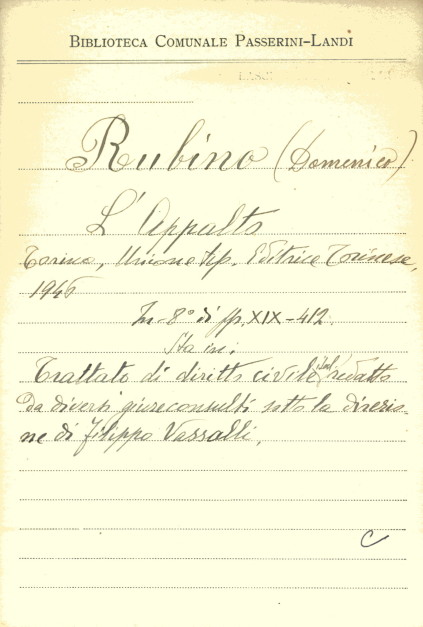 BIBLIOTECA COMUNALE PASSERINI-LANDI
Rubino (Domenico)
L'Appalto
Torino, Unione tip. Editrice Torinese,
1946
In-8° di pp. XIX-412.
Sta in:
Trattato di diritto civile ital. redatto
da diversi giureconsulti sotto la direzio-
ne di Filippo Vassalli.
C